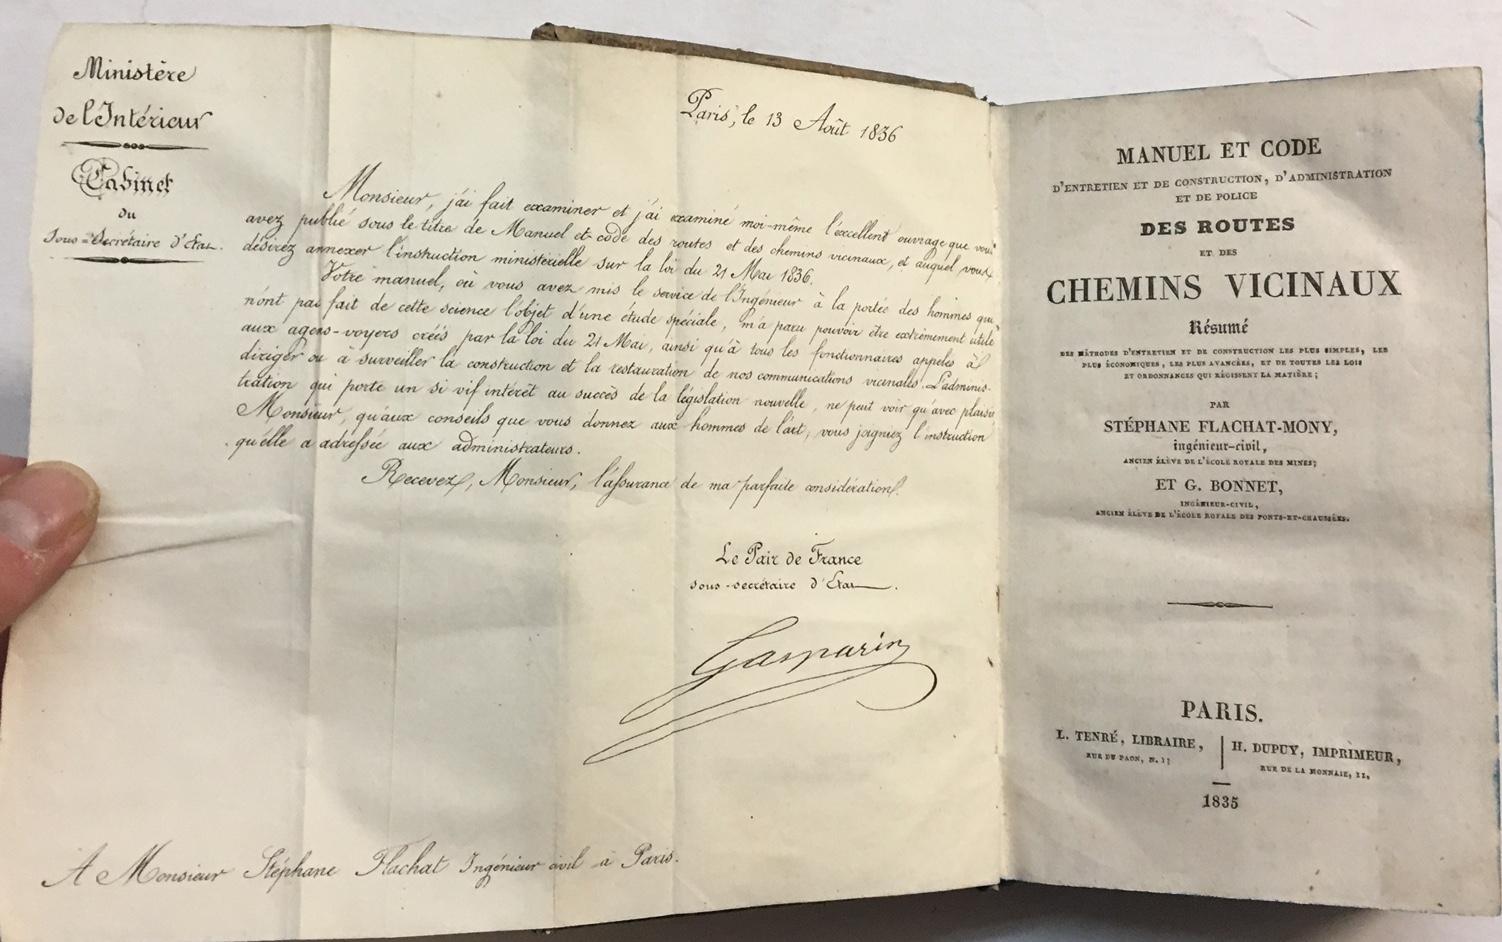 Ministère
de l'Intérieur
Cabinet
du
Sous-Secrétaire d'Etat.
Paris, le 13 Août 1836
Monsieur, j'ai fait examiner et j'ai examiné moi-même l'excellent ouvrage que vous
avez publié sous le titre de Manuel et code des routes et des chemins vicinaux, et auquel vous
désirez annexer l'instruction ministérielle sur la loi du 21 Mai 1836.
Votre manuel, où vous avez mis le service de l'Ingénieur à la portée des hommes qui
n'ont pas fait de cette science l'objet d'une étude spéciale, m'a paru pouvoir être extrêmement utile
aux agens-voyers créés par la loi du 21 Mai, ainsi qu'à tous les fonctionnaires appelés à
diriger ou à surveiller la construction et la restauration de nos communications vicinales. L'adminis-
tration qui porte un si vif intérêt au succès de la législation nouvelle, ne peut voir qu'avec plaisir
Monsieur, qu'aux conseils que vous donnez aux hommes de l'art, vous joigniez l'instruction
qu'elle a adressée aux administrateurs.
Recevez, Monsieur, l'assurance de ma parfaite considération.
Le Pair de France
sous-secrétaire d'Etat.
Gasparin
A Monsieur Stéphane Flachat Ingénieur civil à Paris.
MANUEL ET CODE
D'ENTRETIEN ET DE CONSTRUCTION, D'ADMINISTRATION
ET DE POLICE
DES ROUTES
ET DES
CHEMINS VICINAUX
Résumé
DES MÉTHODES D'ENTRETIEN ET DE CONSTRUCTION LES PLUS SIMPLES, LES
PLUS ÉCONOMIQUES, LES PLUS AVANCÉES, ET DE TOUTES LES LOIS
ET ORDONNANCES QUI RÉGISSENT LA MATIÈRE;
PAR
STÉPHANE FLACHAT-MONY,
ingénieur-civil,
ANCIEN ÉLÈVE DE L'ÉCOLE ROYALE DES MINES;
ET G. BONNET,
INGÉNIEUR-CIVIL,
ANCIEN ÉLÈVE DE L'ÉCOLE ROYALE DES PONTS-ET-CHAUSSÉES.
PARIS.
L. TENRÉ, LIBRAIRE,
RUE DU PAON, N. 1;
H. DUPUY, IMPRIMEUR,
RUE DE LA MONNAIE, 11,
1835